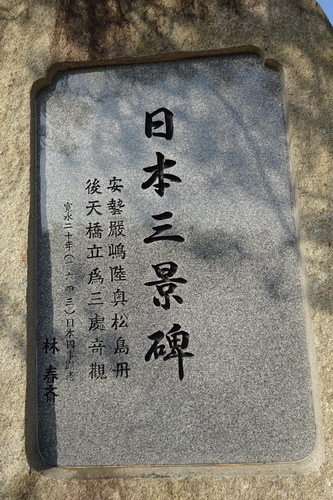 日本三景碑
安藝嚴嶋陸奥松島丹
後天橋立爲三處奇觀
寛永二十年(一六四三)日本国事跡考
林 春斎